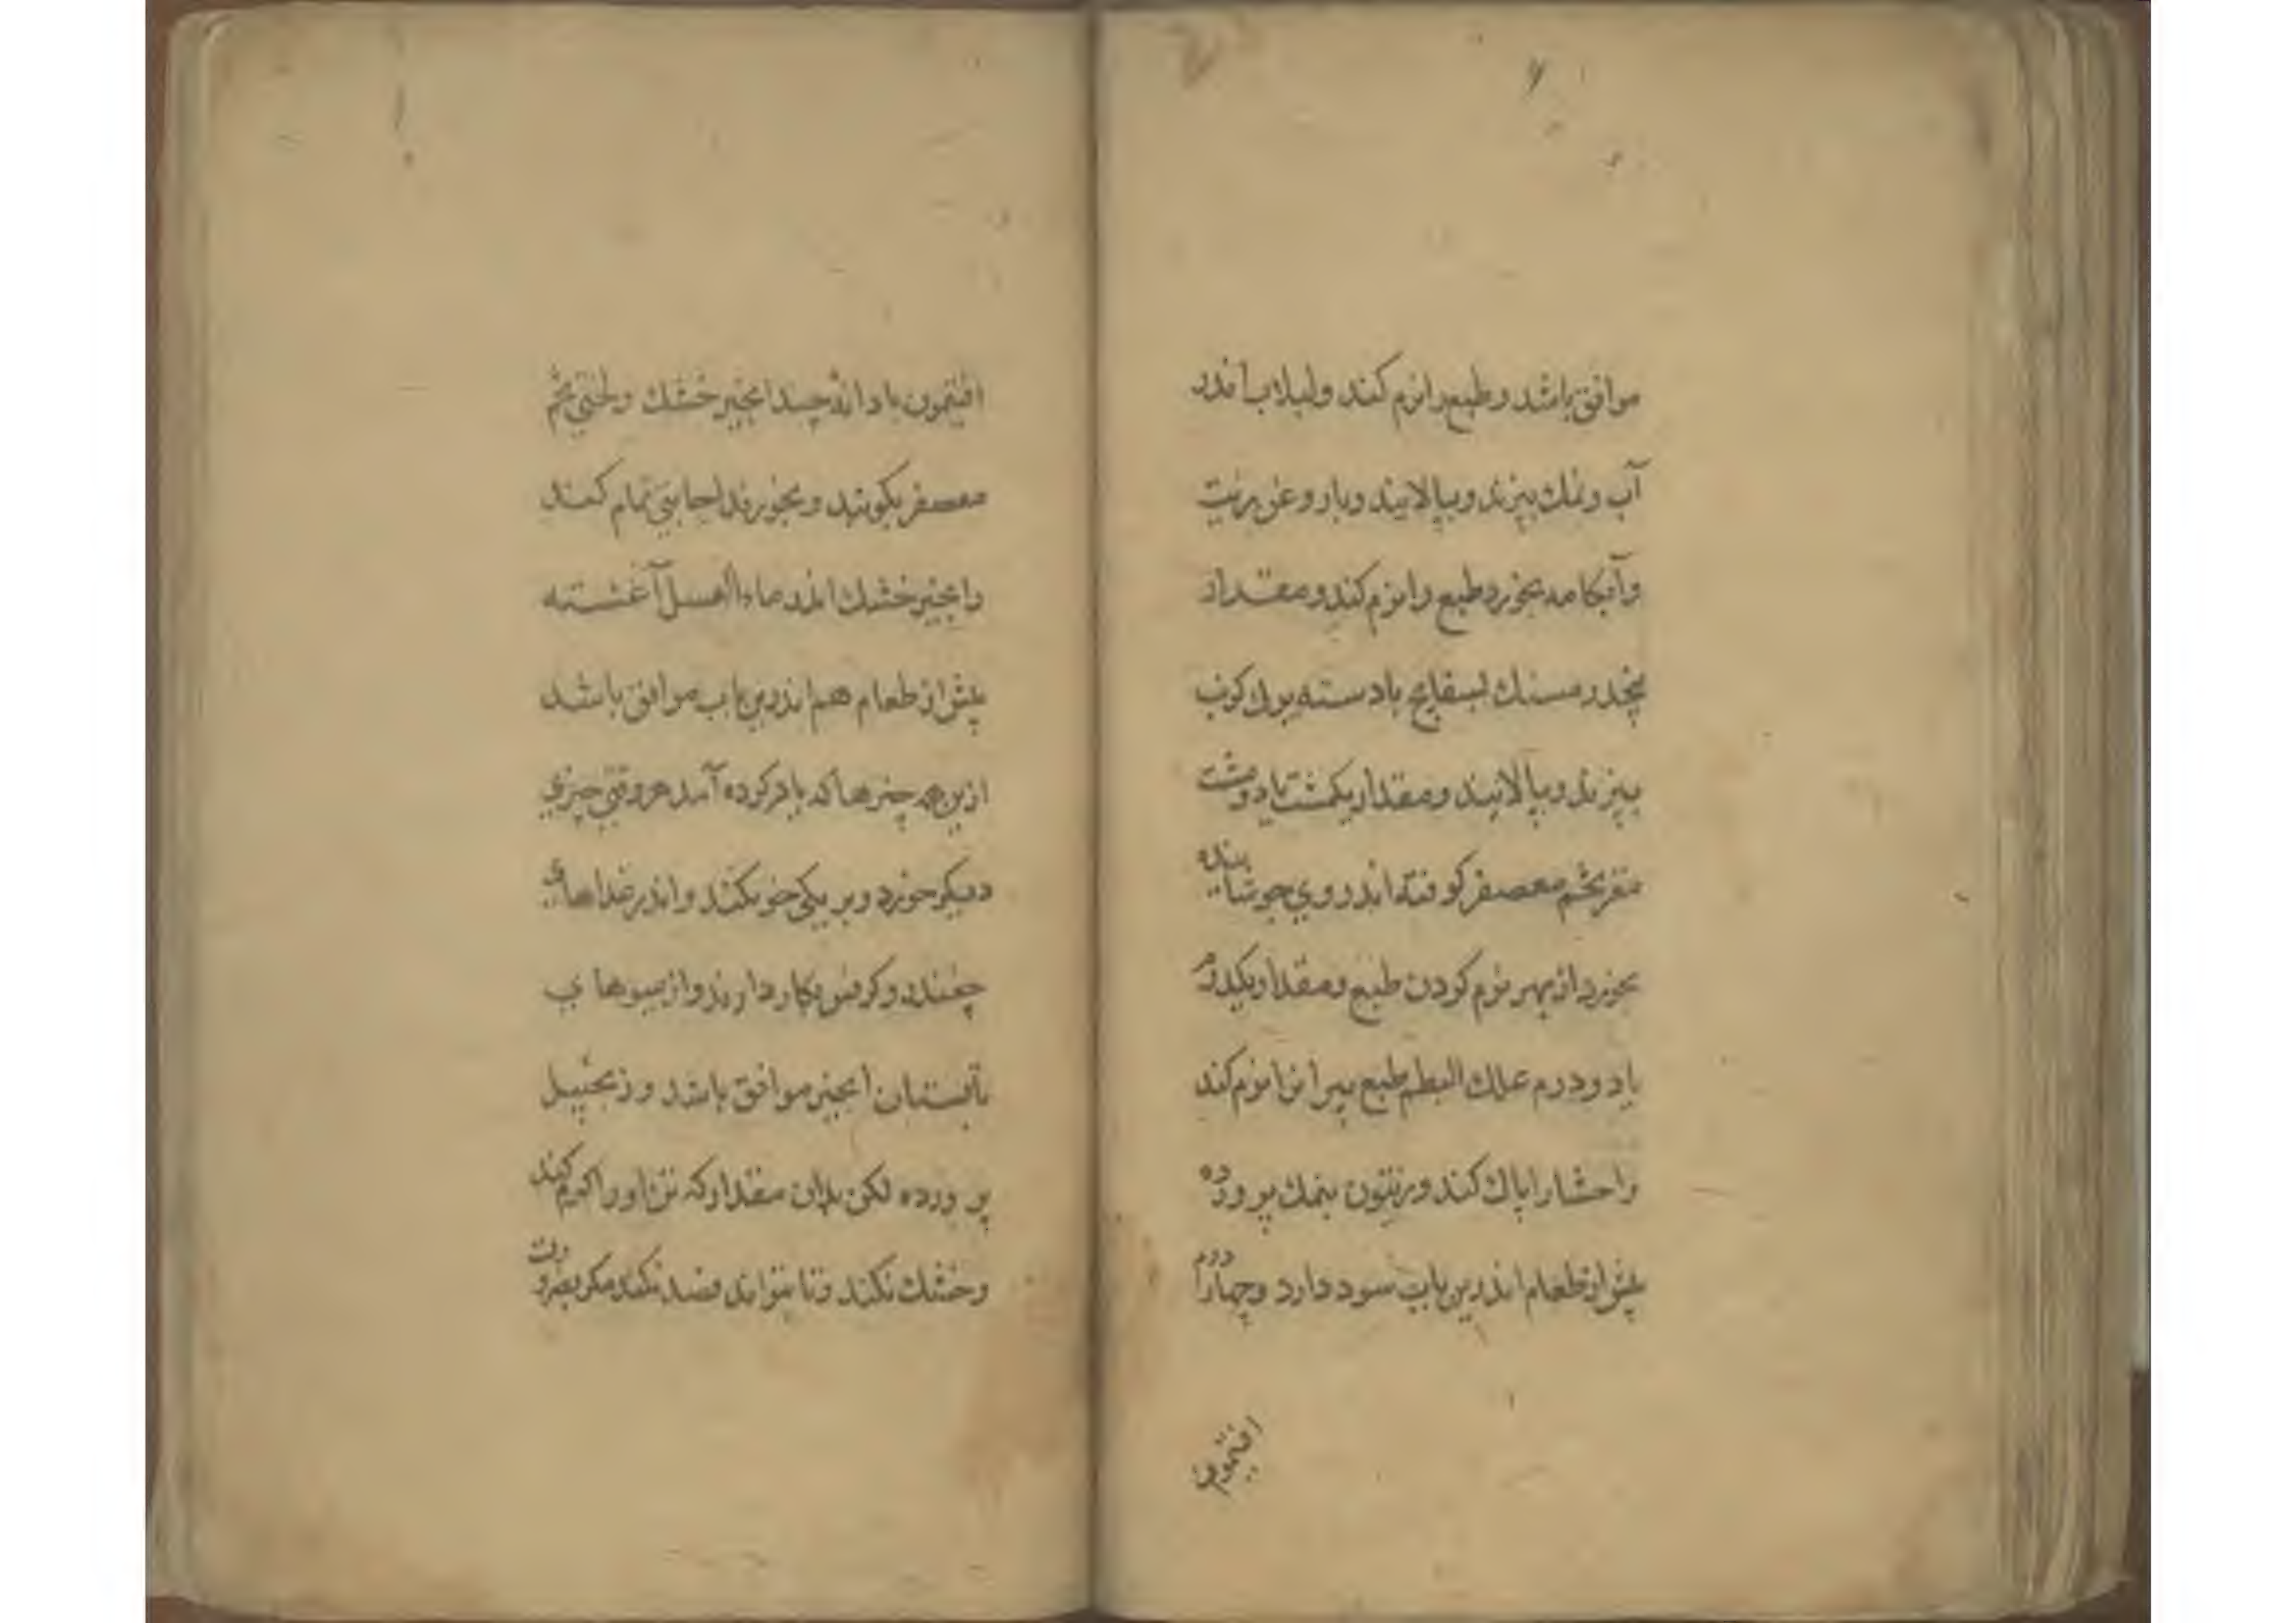 موافق باشد و طبع را نرم کند و لبلاب اندر
آب و نمک بپزند و بپالایند و با روغن زیت
و آبکامه بخورد طبع را نرم کند و مقدار
پنجدرمسنک بسفایج با دسته بوک کرنب
بپزند و بپالایند و مقدار یکمشت یا دو مشت
مغز تخم معصفر کوفته اندر وی جوشانیده
بخورد از بهر نرم کردن طبع و مقدار یکدرم
یا دو درم علک البطم طبع پیرانرا نرم کند
و احشا را پاک کند و زیتون بنمک پرورده
پیش از طعام اندرین باب سود دارد و چهار درم
افتیمون
افتیمون با دانه چند انجیر خشک و لختی تخم
معصفر بکوبند و بخورند اجابتی تمام کند
و انجیر خشک اندر ماء العسل آغشته
پیش از طعام هم اندرین باب موافق باشد
ازین همه چیزها که یاد کرده آمد هر وقتی چیزی
دیگر خورد و بر یکی خو نکند و اندر غذاهای
چغندر و کرفس بکار دارند و از میوهای
تابستان انجیر موافق باشد و زنجبیل
پرورده لکن بدان مقدار که تن او را گرم کند
و خشک نکند و تا بتواند فصد نکند مکر بضرورت